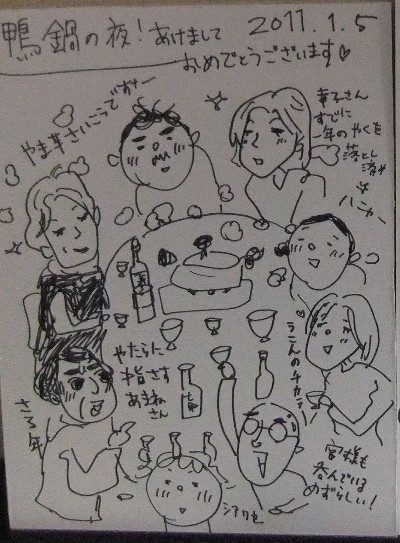 鴨鍋の夜！あけまして
おめでとうございます♡
2011.1.5
やま芋さいこうですー
幸子さん
すでに
一年のやくを
落とし済み
ハニャー
うこんのチカラ
やたらに
指さす
あまねさん
さる年
宮様も
呑んでいる
めずらしい！
シアワセ